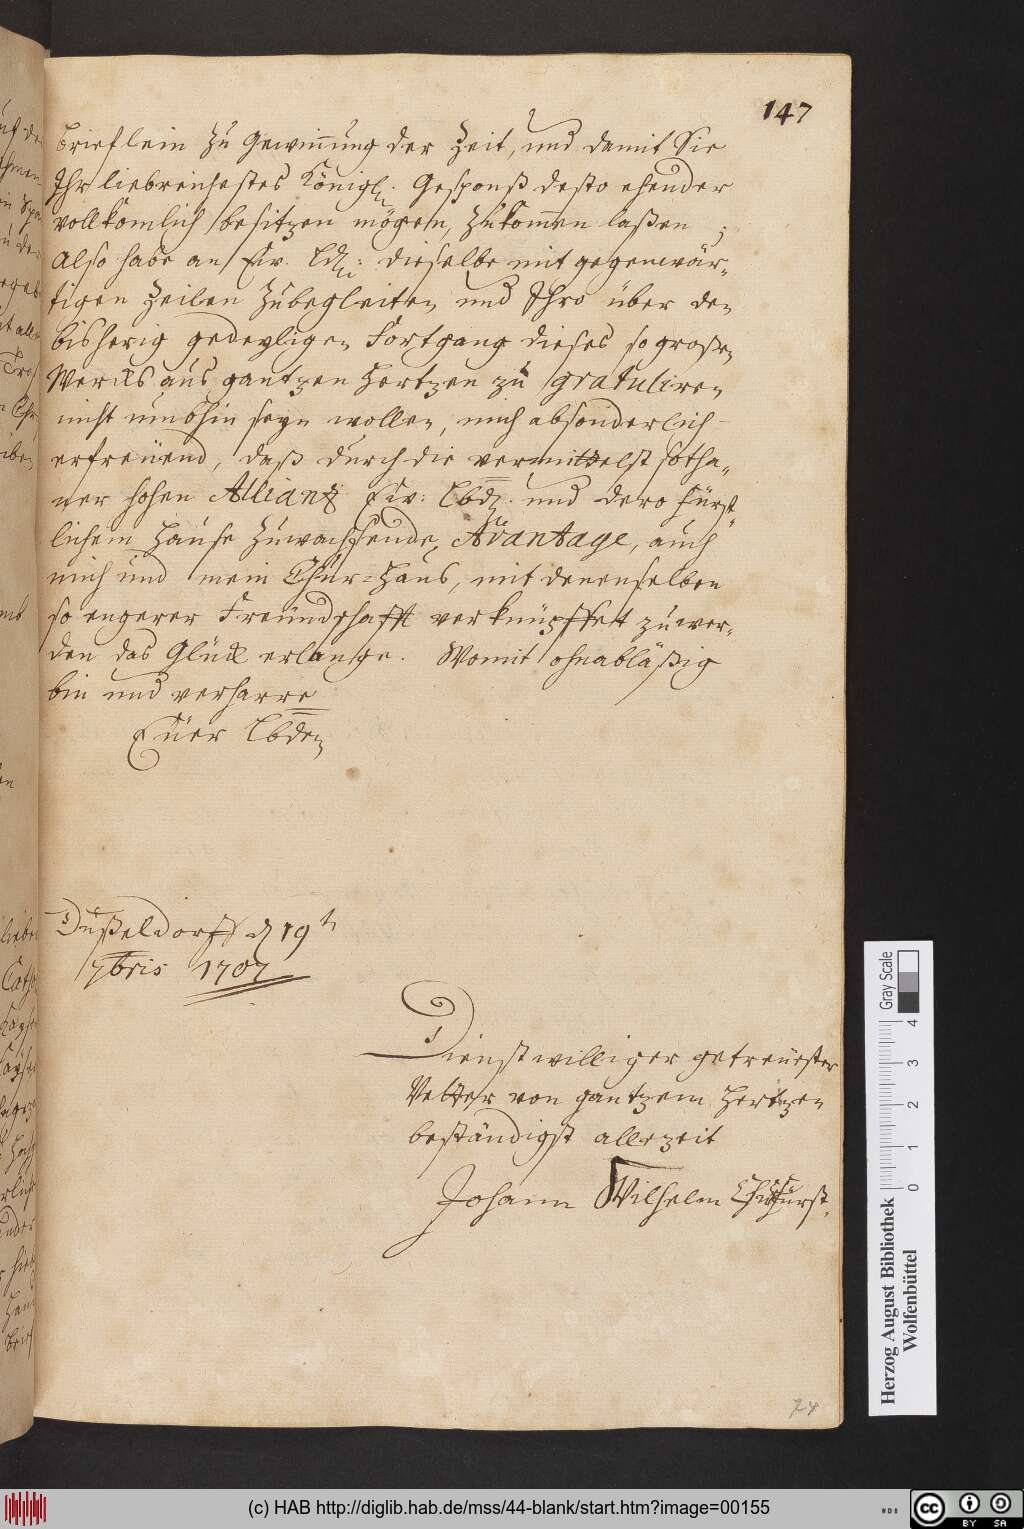 147
brieflein zu Gewinnung der Zeit, und damit Sie
Ihr liebreichestes Königl. Gesponß desto ehender
vollkomlich besitzen mögen, zukommen laßen ;
Also habe an Ew. Ld. dieselbe mit gegenwär-
tigen Zeilen zubegleiten und Ihro über den
bisherig gedeyligen Fortgang dieses so großen
Wercks aus gantzen Hertzen zu gratuliren
nicht umbhin seyn wollen, mich absonderlich
erfreüend, daß durch die vermittelst sotha-
ner hohen Alliantz Ew: Lbd. und dero Fürst-
lichem Hause zuwachsende Avantage, auch
mich und mein Chur-Haus, mit denenselben
so engerer Freündschafft verknüpffet zu wer-
den das Glück erlange. Womit ohnabläßig
bin und verharre
Eüer Lbden
Düßeldorff d 19t
7bris 1707
Dienstwilliger getreüester
Vetter von gantzem Hertzen
beständigst allezeit
Johann Wilhelm Churfürst.
Herzog August Bibliothek
Wolfenbüttel
Gray Scale
0 1 2 3 4
(c) HAB http://diglib.hab.de/mss/44-blank/start.htm?image=00155
WDB
cc BY SA